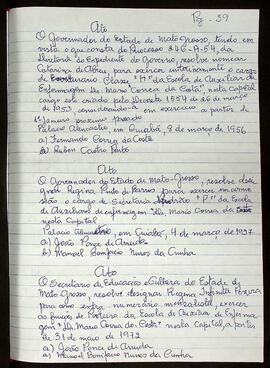 Pg - 39
Ato
O Governador do Estado de Mato Grosso, tendo em
vista o que consta do Processo 846-A-54, da
Diretoria do Expediente do Governo, resolve nomear
de Abreu, para exercer interinamente o cargo
de Escriturário Classe "H" da Escola de Auxiliar de
Enfermagem "Dr. Mario Correa da Costa", nesta Capital
cargo este criado pelo Decreto 1554 de 26 de março
de 1953, considerando-o em exercício a partir de
1º Janeiro próximo passado
Palácio Alencastro, em Cuiabá, 8 de março de 1956
a) Fernando Correa da Costa
a) Ruben Castro Pinto
Ato
O Governador do Estado de Mato-Grosso, resolve desi
gnar Regina Pinto de Barros para exercer em comis
são o cargo de Secretária "P" da Escola
de Auxiliares de enfermagem "Dr. Mario Correa da Costa"
nesta
Palacio Alencastro, em Cuiabá, 4 de março de 1957
a) João Ponce de Arruda
b) Manoel Bonifacio Nunes da Cunha
Ato
O Secretario de Educação e Cultura do Estado de
Mato Grosso, resolve designar Regina
para como extra numerário mensalista, exercer
as funções de Porteiro da Escola de Auxiliar de Enferma
gem "Dr. Mario Correa da Costa" nesta Capital, a partir
de 31 de maio de 1972
a) João Ponce de Arruda
a) Manoel Bonifacio Nunes da Cunha